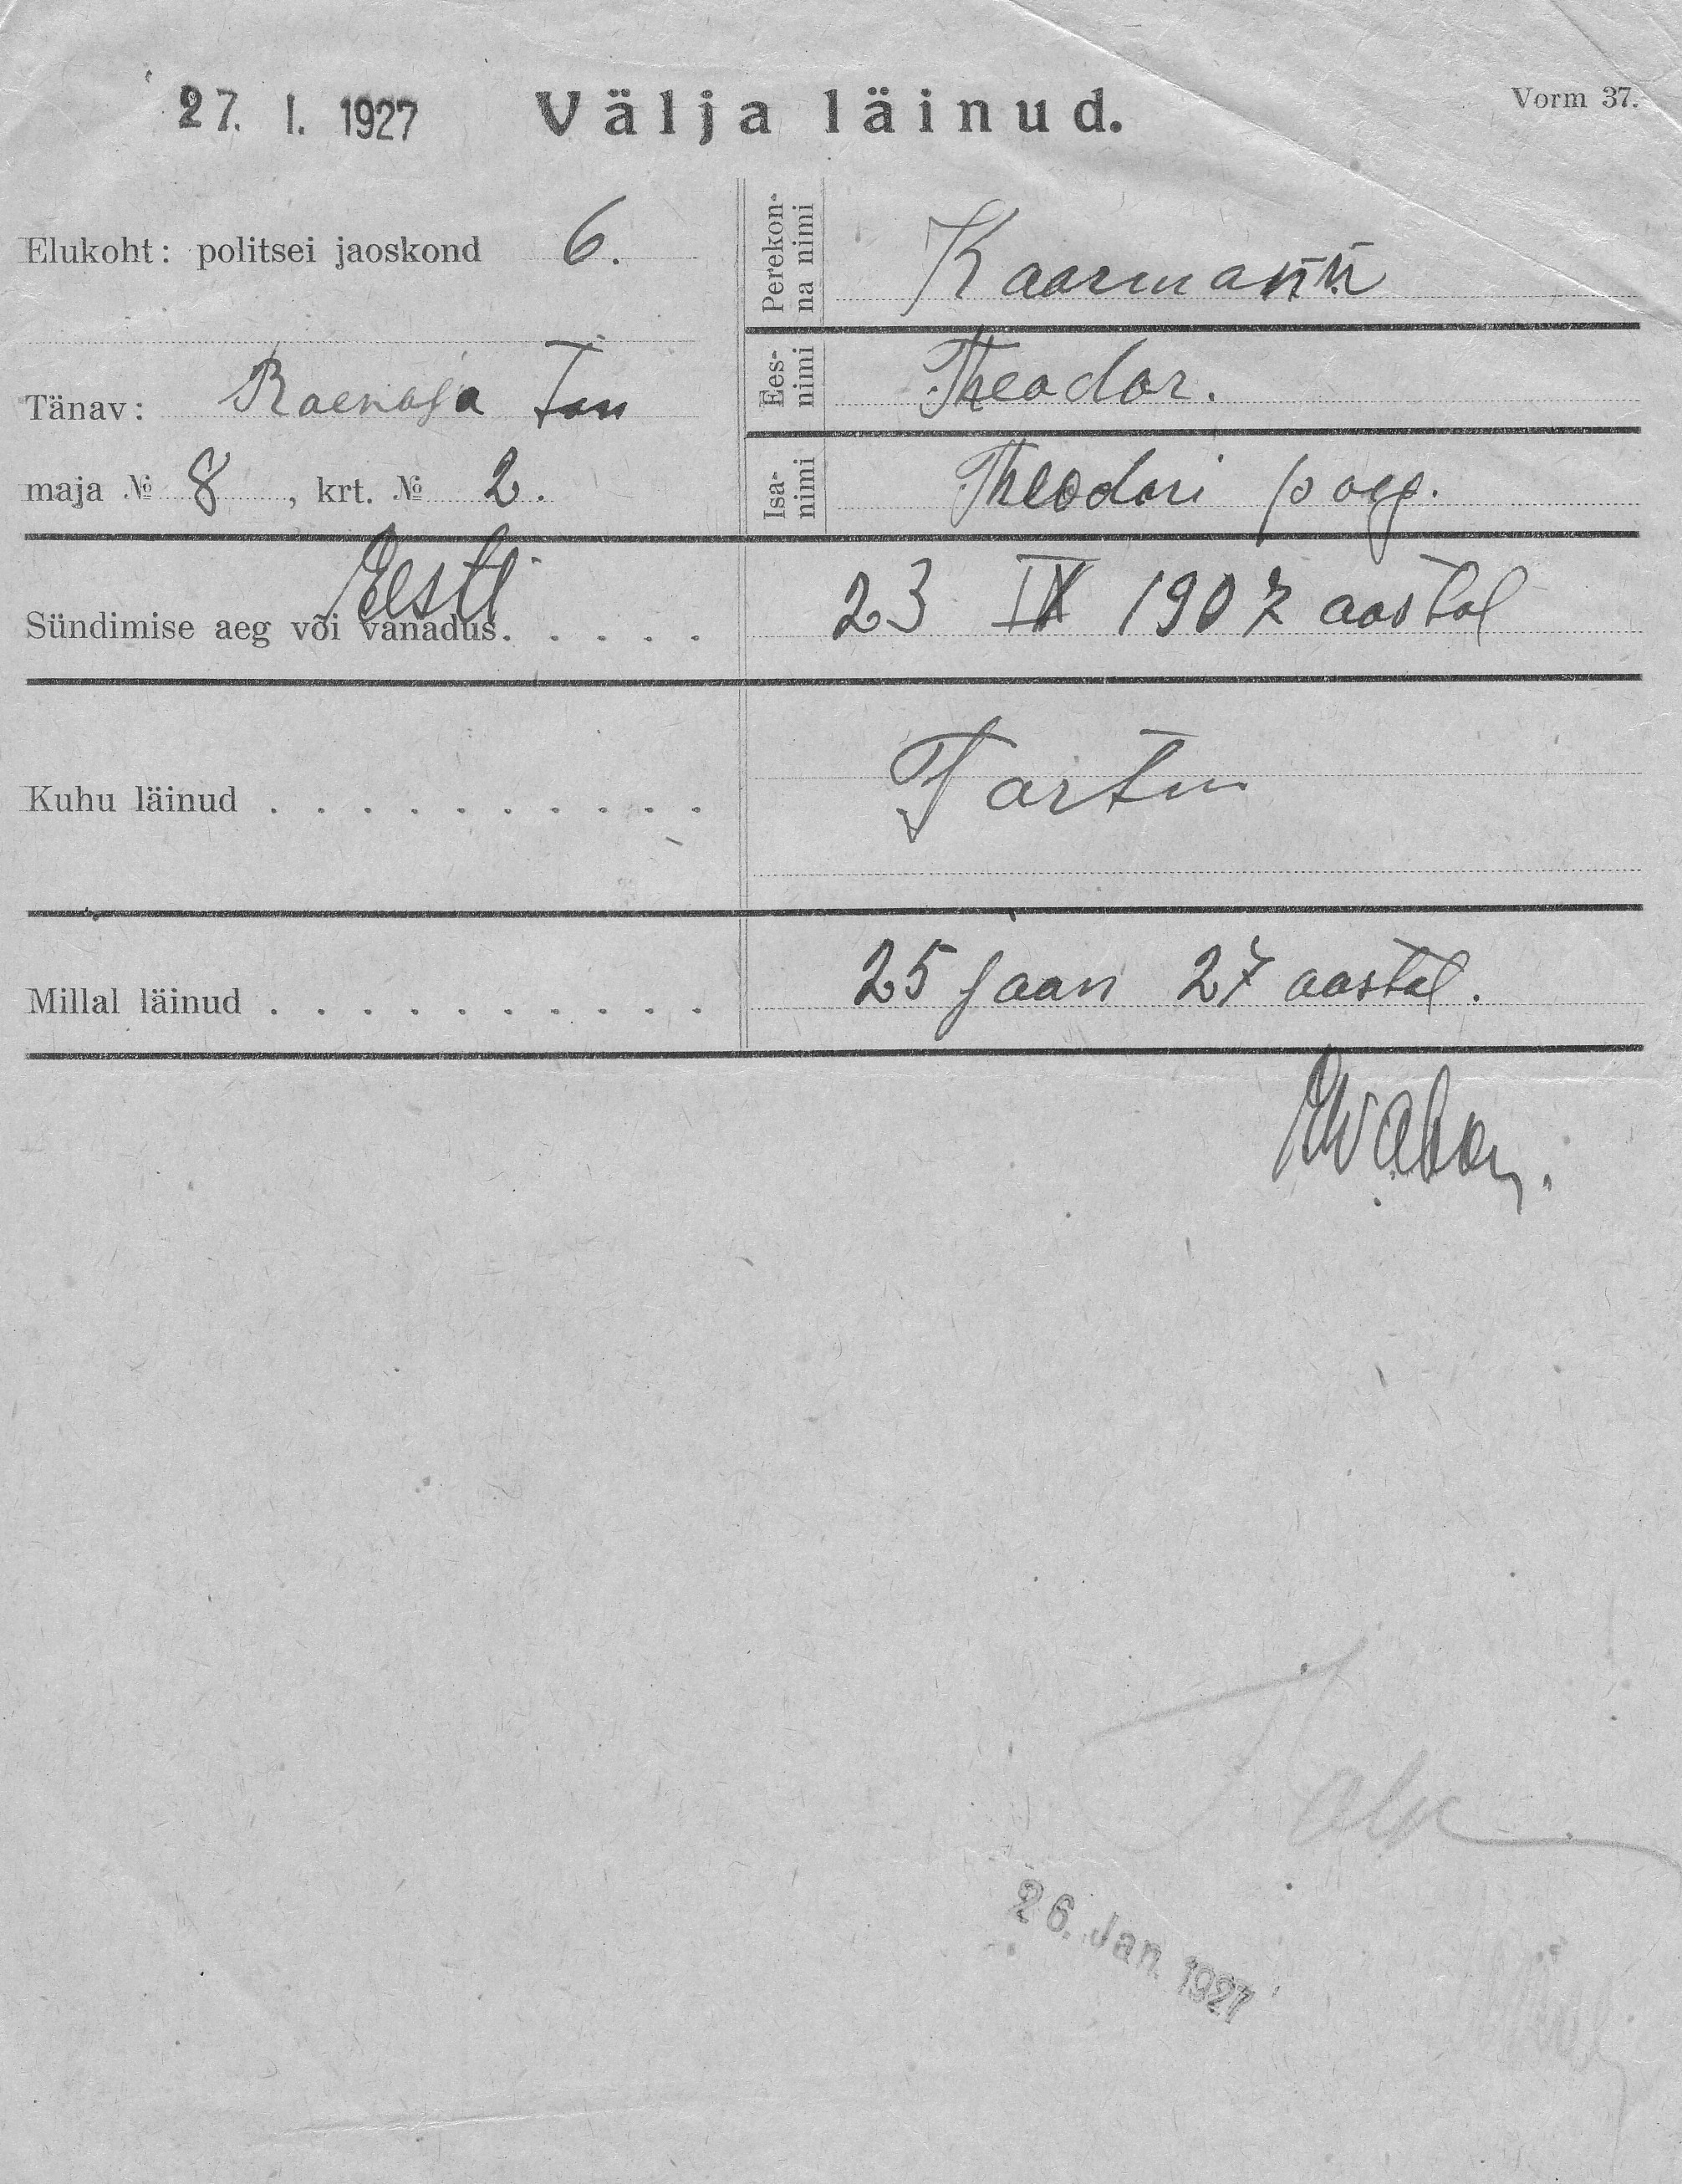 27. I. 1927 Välja läinud. Vorm 37.
Elukoht: politsei jaoskond 6.
Perekonna nimi Kaarmann
Eesnimi Theodor.
Tänav: Raenaja tän
Isanimi Theodori poeg.
maja № 8, krt. № 2.
Eesti
Sündimise aeg või vanadus. . . . . 23 IX 1907 aastal
Kuhu läinud . . . . . . . . . . Tartu
Millal läinud . . . . . . . . . . 25 jaan 27 aastal.
26. Jan. 1927